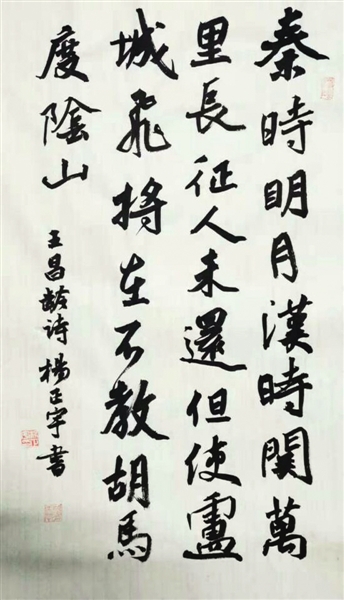 秦時明月漢時関萬
里長征人未還但使盧
城飛將在不教胡馬
度陰山
王昌齡詩 楊正宇書